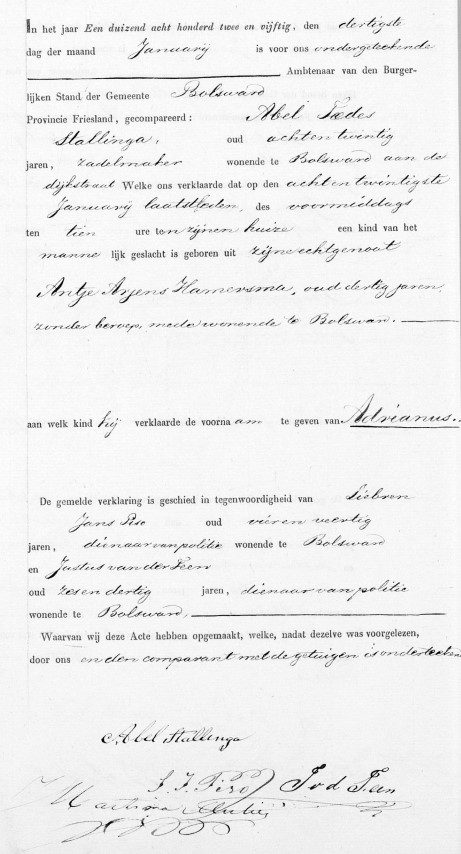 In het jaar Een duizend acht honderd twee en vijftig, den dertigste
dag der maand Januarij is voor ons ondergeteekende
Ambtenaar van den Burger-
lijken Stand der Gemeente Bolsward
Provincie Friesland, gecompareerd: Abel Tædes
Stallinga, oud acht en twintig
jaren, zadelmaker wonende te Bolsward aan de
dijkstraat Welke ons verklaarde dat op den acht en twintigste
Januarij laatstleden, des voormiddags
ten tien ure ten zijnen huize een kind van het
manne lijk geslacht is geboren uit zijne echtgenoot
Antje Arjens Hamersma, oud dertig jaren,
zonder beroep, mede wonende te Bolsward.
aan welk kind hij verklaarde de voorna am te geven van Adrianus.
De gemelde verklaring is geschied in tegenwoordigheid van Siebren
Jans Piso oud vier en veertig
jaren, dienaar van politie wonende te Bolsward
en Justus van der Feen
oud zes en dertig jaren, dienaar van politie
wonende te Bolsward,
Waarvan wij deze Acte hebben opgemaakt, welke, nadat dezelve was voorgelezen,
door ons en den comparant met de getuigen is onderteekend
Abel Stallinga
S. J. Piso J v d Feen